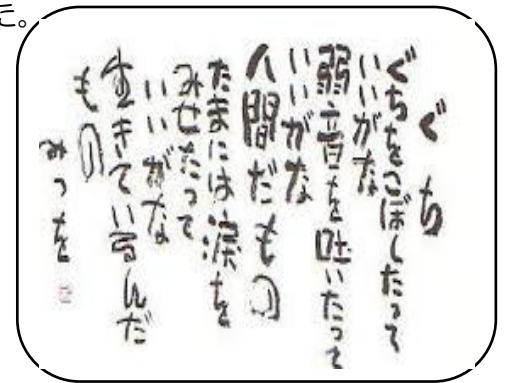 た。
ぐち
ぐちをこぼしたって
いいがな
弱音を吐いたって
いいがな
人間だもの
たまには涙を
みせたって
いいがな
生きているんだ
もの
みつを